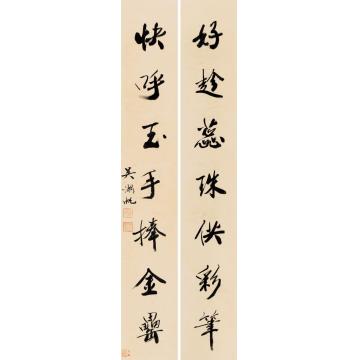 好趁蕊珠供彩筆
快呼玉手捧金罍
吳湖帆